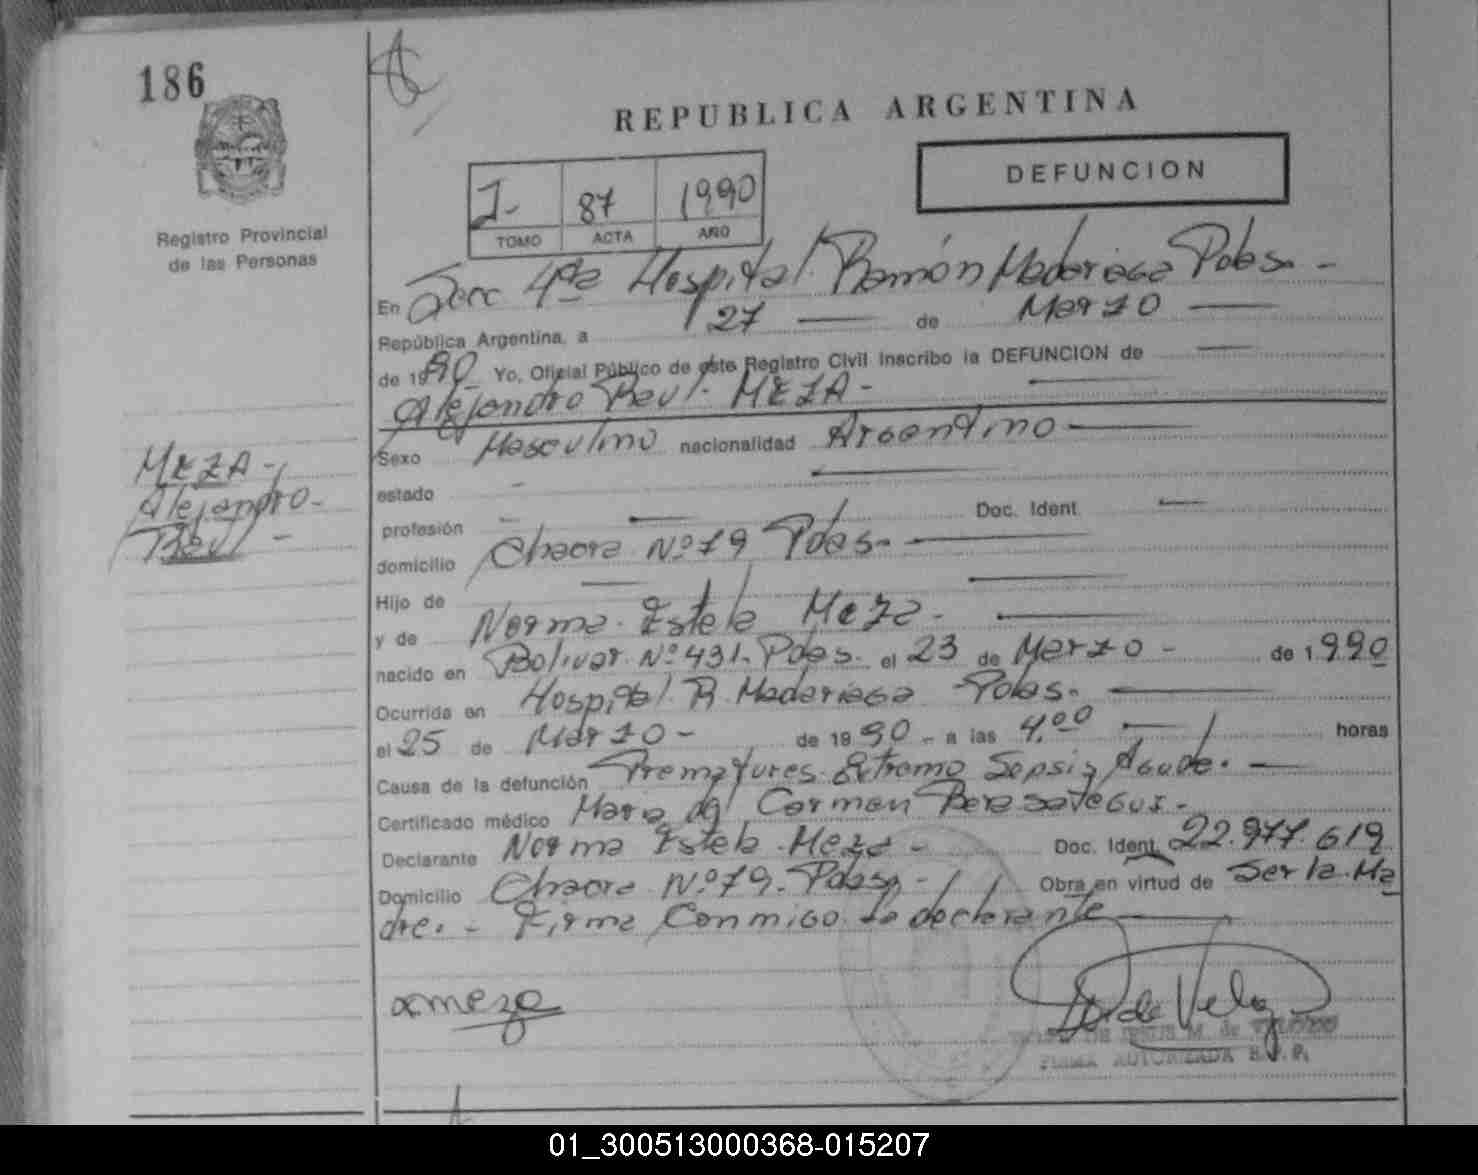 186
REPUBLICA ARGENTINA
DEFUNCION
I- 87 1990
TOMO ACTA AÑO
Registro Provincial
de las Personas
En Secc 4ta Hospital Ramón Madariaga Pdas. -
República Argentina, a 27 de Marzo
de 1990 Yo, Oficial Público de este Registro Civil Inscribo la DEFUNCION de
Alejandro Raul. MEZA-
Sexo Masculino nacionalidad Argentino
MEZA-
Alejandro-
Raul -
estado -
profesión - Doc. Ident. -
domicilio Chacra Nº 79 Pdas-
Hijo de
y de Norma. Estela Meza-
nacido en Bolivar Nº 431. Pdas. el 23 de Marzo - de 1.990
Ocurrida en Hospital. R. Madariaga Pdas.
el 25 de Marzo- de 1990- a las 4,00 horas
Causa de la defunción Prematurez. Extremo Sepsis Aguda.
Certificado médico Maria del Carmen Berasategui-
Declarante Norma Estela. Meza - Doc. Ident. 22.977.619
Domicilio Chacra Nº 79. Pdas - Obra en virtud de Ser la. Ma
dre. - Firma Conmigo la declarante
xmeza
de Veloz
FIRMA AUTORIZADA
01_300513000368-015207